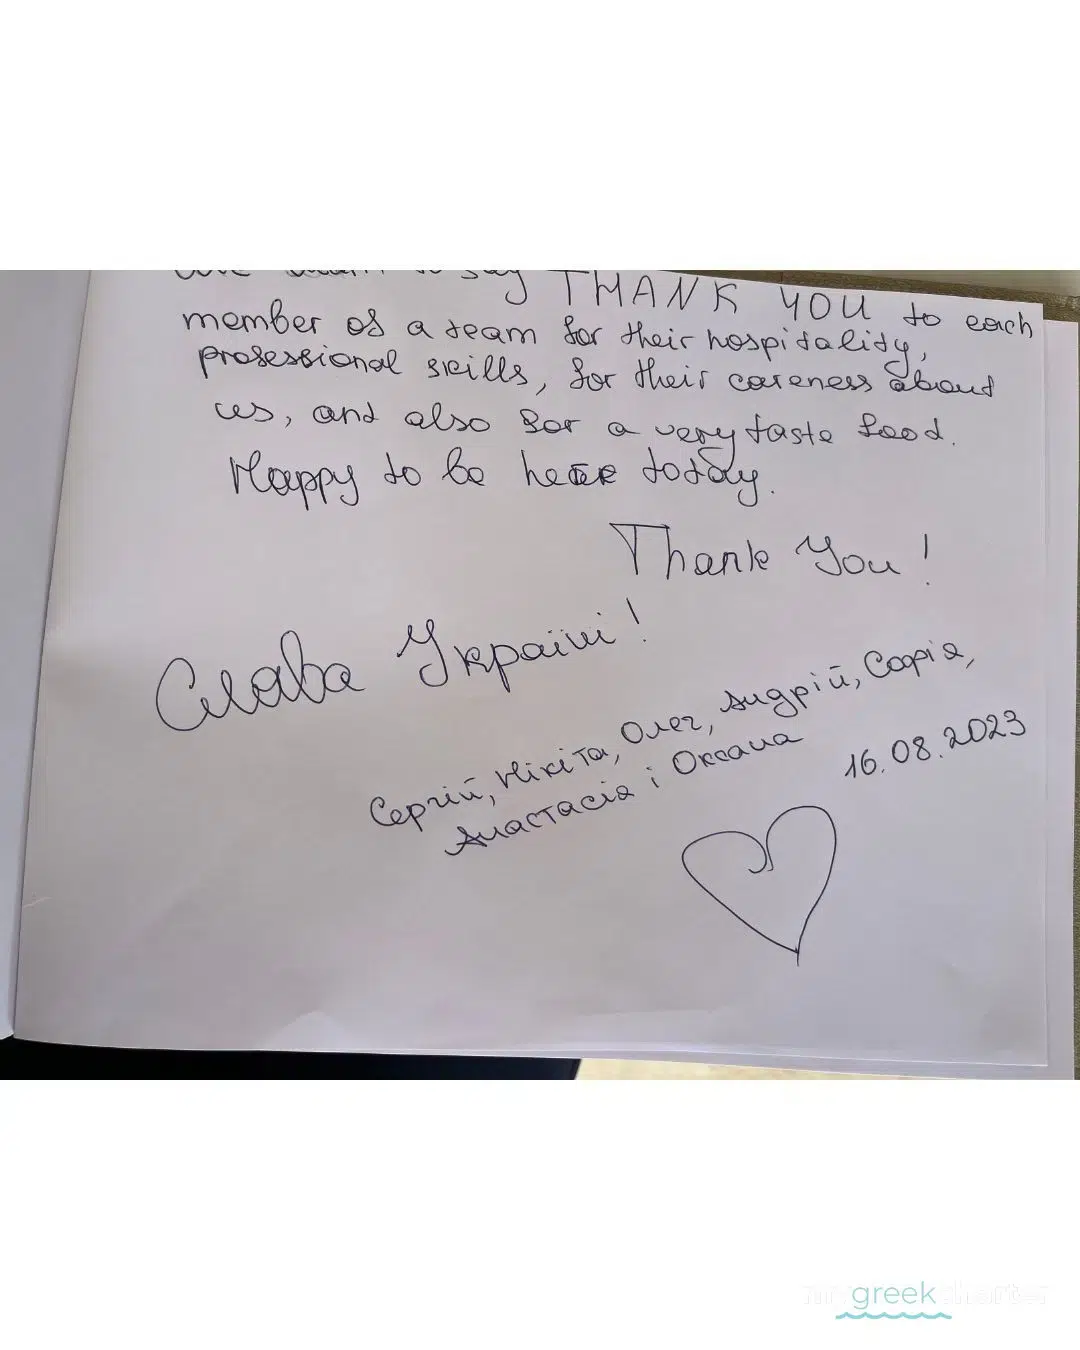 we want to say THANK YOU to each
member of a team for their hospitality,
professional skills, for their careness about
us, and also for a very taste food.
Happy to be here today.
Thank You!
Слава Україні!
Сергій, Нікіта, Олег, Андрій, Софія,
Анастасія і Оксана
16.08.2023
mygreekcharter